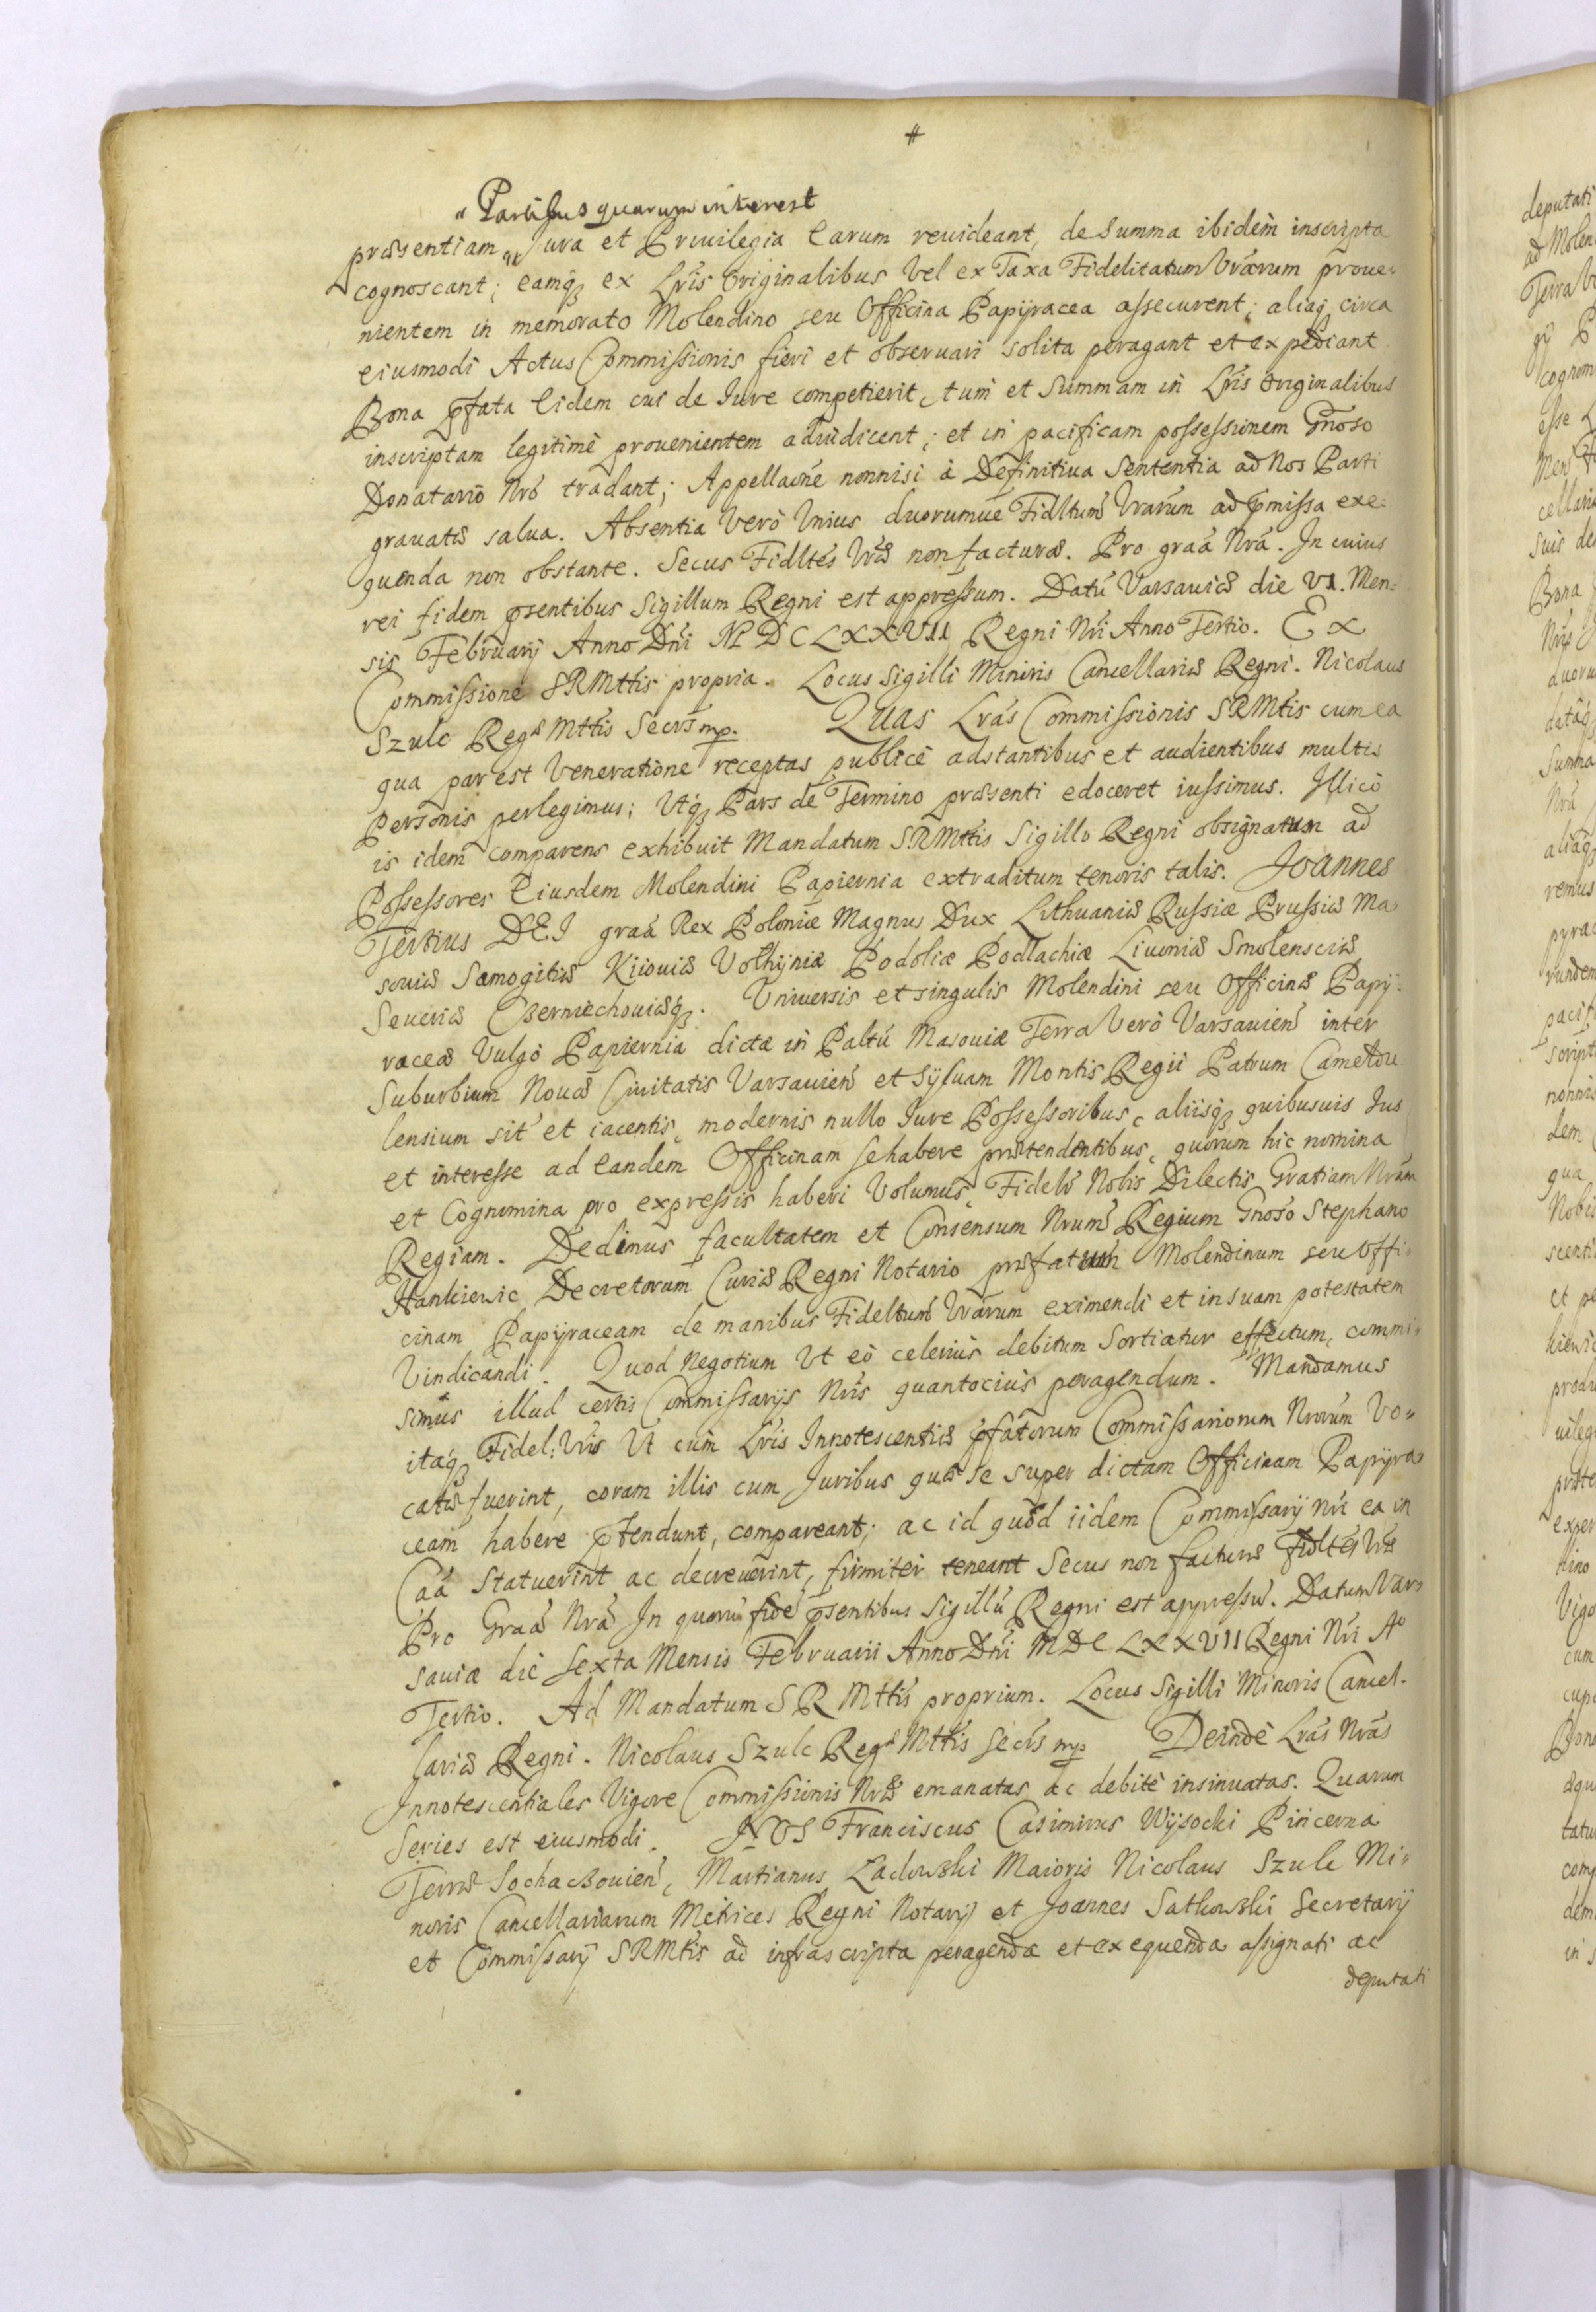 #
" Partibus quarum interest
præsentiam " Jura et Priuilegia Earum reuideant, de Summa ibidem inscripta
cognoscant; eamq₃ ex Lris Originalibus Vel ex Taxa Fidelitatum Vrarum proue-
nientem in memorato Molendino seu Officina Papÿracea assecurent; aliaq₃ circa
eiusmodi Actus Commissionis fieri et obseruari solita peragant et expediant
Bona pfata Eidem cui de Iure competierit, tum et Summam in Lris Originalibus
inscriptam legitimè prouenientem adiudicent; et in pacificam possessionem Gnoso
Donatario Nro tradant; Appellaõne nonnisi à Definitiua Sententia ad Nos Parti
grauatæ salua. Absentia Verò Vnius duorumue Fidltum Vrarum ad pmissa exe-
quenda non obstante. Secus Fidltes Vræ non facturæ. Pro graã Nrã. In cuius
rei fidem psentibus Sigillum Regni est appressum. Datũ Varsauiæ die VI. Men-
sis Februarÿ Anno Dni M DC LXXVII Regni Nri Anno Tertio. Ex
Commissione SRMttis propria. Locus Sigilli Minoris Cancellariæ Regni. Nicolaus
Szulc Regæ Mttis Secrs mp. QUAS Lras Commissionis SRMtis cum ea
qua par est Veneratione receptas publicè adstantibus et audientibus multis
Personis perlegimus; Vtq₃ Pars de Termino præsenti edoceret iussimus. Illicò
is idem comparens exhibuit Mandatum SRMttis Sigillo Regni obsignatum ad
Possessores Eiusdem Molendini Papiernia extraditum tenoris talis. Joannes
Tertius DEI graã Rex Poloniæ Magnus Dux Lithuaniæ Russiæ Prussiæ Ma-
souiæ Samogitiæ Kiiouiæ Volhÿniæ Podoliæ Podlachiæ Liuoniæ Smolensciæ
Seueriæ Czerniechouiæq₃. Vniuersis et singulis Molendini seu Officinæ Papÿ-
raceæ Vulgò Papiernia dictæ in Paltũ Masouiæ Terra Verò Varsauien inter
Suburbium Nouæ Ciuitatis Varsauien et Sÿluam Montis Regii Patrum Cameldu
lensium sit et iacentis, modernis nullo Iure Possessoribus, aliisq₃ quibusuis Jus
et interesse ad Eandem Officinam se habere prætendentibus, quorum hic nomina
et Cognomina pro expressis haberi Volumus, Fidelr Nobis Dilectis Gratiam Nram
Regiam. Dedimus facultatem et Consensum Nrum Regium Gnoso Stephano
Hankiewic Decretorum Curiæ Regni Notario præfatum Molendinum seu Offi-
cinam Papÿraceam de manibus Fideltum Vrarum eximendi et in suam potestatem
Vindicandi. Quod Negotium Vt eò celerius debitum Sortiatur effectum, commi-
simus illud certis Commissarÿs Nris quantocius peragendum. Mandamus
itaq₃ Fidel: Vris Vt cum Lris Innotescentiæ pfatorum Commissariorum Nrorum Vo-
catæ fuerint, coram illis cum Juribus quæ se super dictam Officinam Papÿra-
ceam habere ptendunt, compareant; ac id quod iidem Commissarÿ Nri ea in
Caã Statuerint ac decreuerint, firmiter teneant Secus non facturæ Fidltes Vræ
Pro Graã Nrã In quorũ fidẽ psentibus Sigillũ Regni est appressũ. Datum Var-
sauiæ die Sexta Mensis Februarii Anno Dni MDC LXXVII Regni Nri Ao
Tertio. Ad Mandatum S R Mttis proprium. Locus Sigilli Minoris Cancel-
lariæ Regni. Nicolaus Szulc Regæ Mttis Secrs mp Deindè Lras Nras
Innotescentiales Vigore Commissionis Nræ emanatas ac debitè insinuatas. Quarum
Series est eiusmodi. NOS Franciscus Casimirus Wÿsocki Pincerna
Terræ Sochaczouien, Martianus Ładowski Maioris Nicolaus Szulc Mi-
noris Cancellariarum Metrices Regni Notarÿ et Joannes Satkowski Secretarÿ
et Commissarÿ SRMtis ad infrascripta peragenda et exequenda assignati ac
deputati